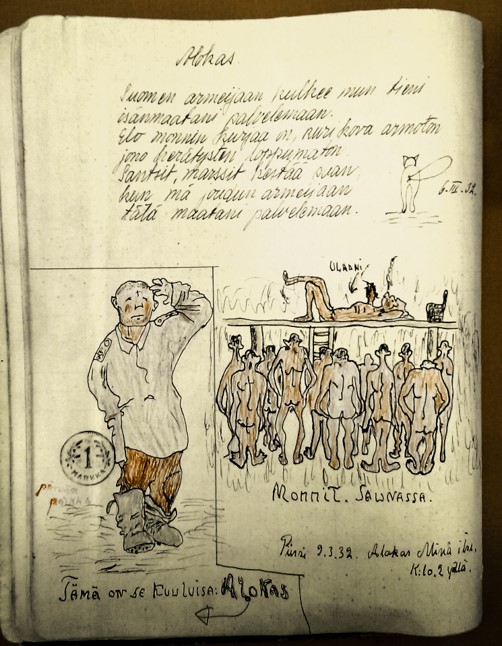 Alokas.
Suomen armeijaan kulkee mun tieni
isänmaatani palvelemaan.
Elo monnin kurjaa on, kuri kova armoton
jono herätysten loppumaton
Santsit, marssit kestää vian,
kun mä jouduin armeijaan
tätä maatani palvelemaan.
6-III-32.
ULAANI
1
MARKKA
päivän
palkka
MONNIT. SAUNASSA.
Piirsi 9.3.32. Alokas Minä itse.
K:lo. 2 yöllä.
TÄMÄ ON SE KUULUISA: ALOKAS